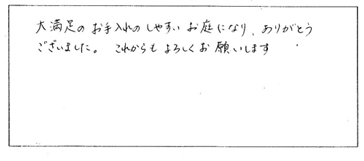 大満足のお手入れのしやすいお庭になり、ありがとう
ございました。これからもよろしくお願いします